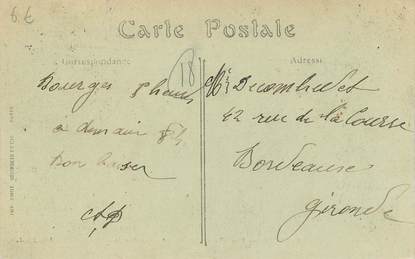 6.E
Carte Postale
Correspondance
Adresse
18
Bourges 8 heures
à demain
Bon baiser
Decombedet
42 rue de la Course
Bordeaux
Gironde